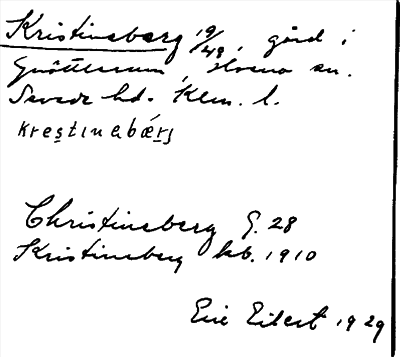 Kristineberg 19/49, gård i
Gnöttlerum, Horna sn.
Sevede hd. Klm. l.
krestinabærj
Christineberg G. 28
Kristineberg kb. 1910
Eric Eilert 1929